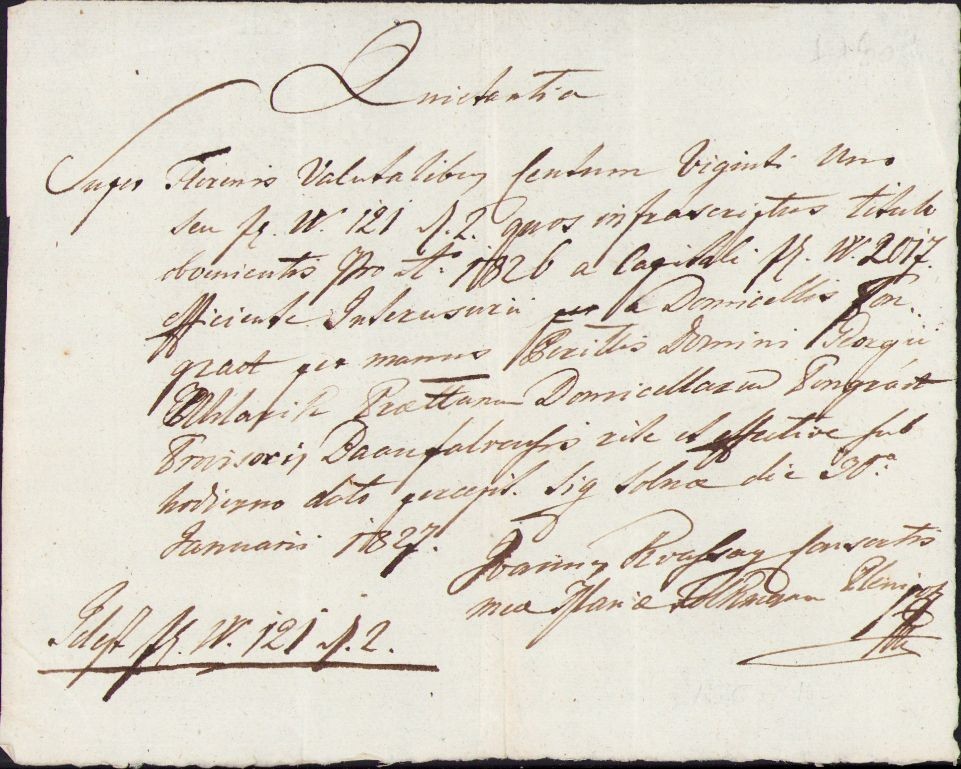 Quietantia
Super Florenis Valutalibus Centum Viginti Uno
seu fl. W. 121 x. 2. quos infrascriptus titulo
obvenientis Pro Ao. 1826 a Capitali fl. W. 2017.
efficiente Interusurii a Domicellis Pon
gracz per manus Domini Georgii
Domicellarum Pongrácz
Provisoris rite et effective sub
hodierno dato percepi. Sig Solnae die 30a
Januarii 1827.
Joannes consortis
mea Maria
Idest fl. W. 121 x. 2.